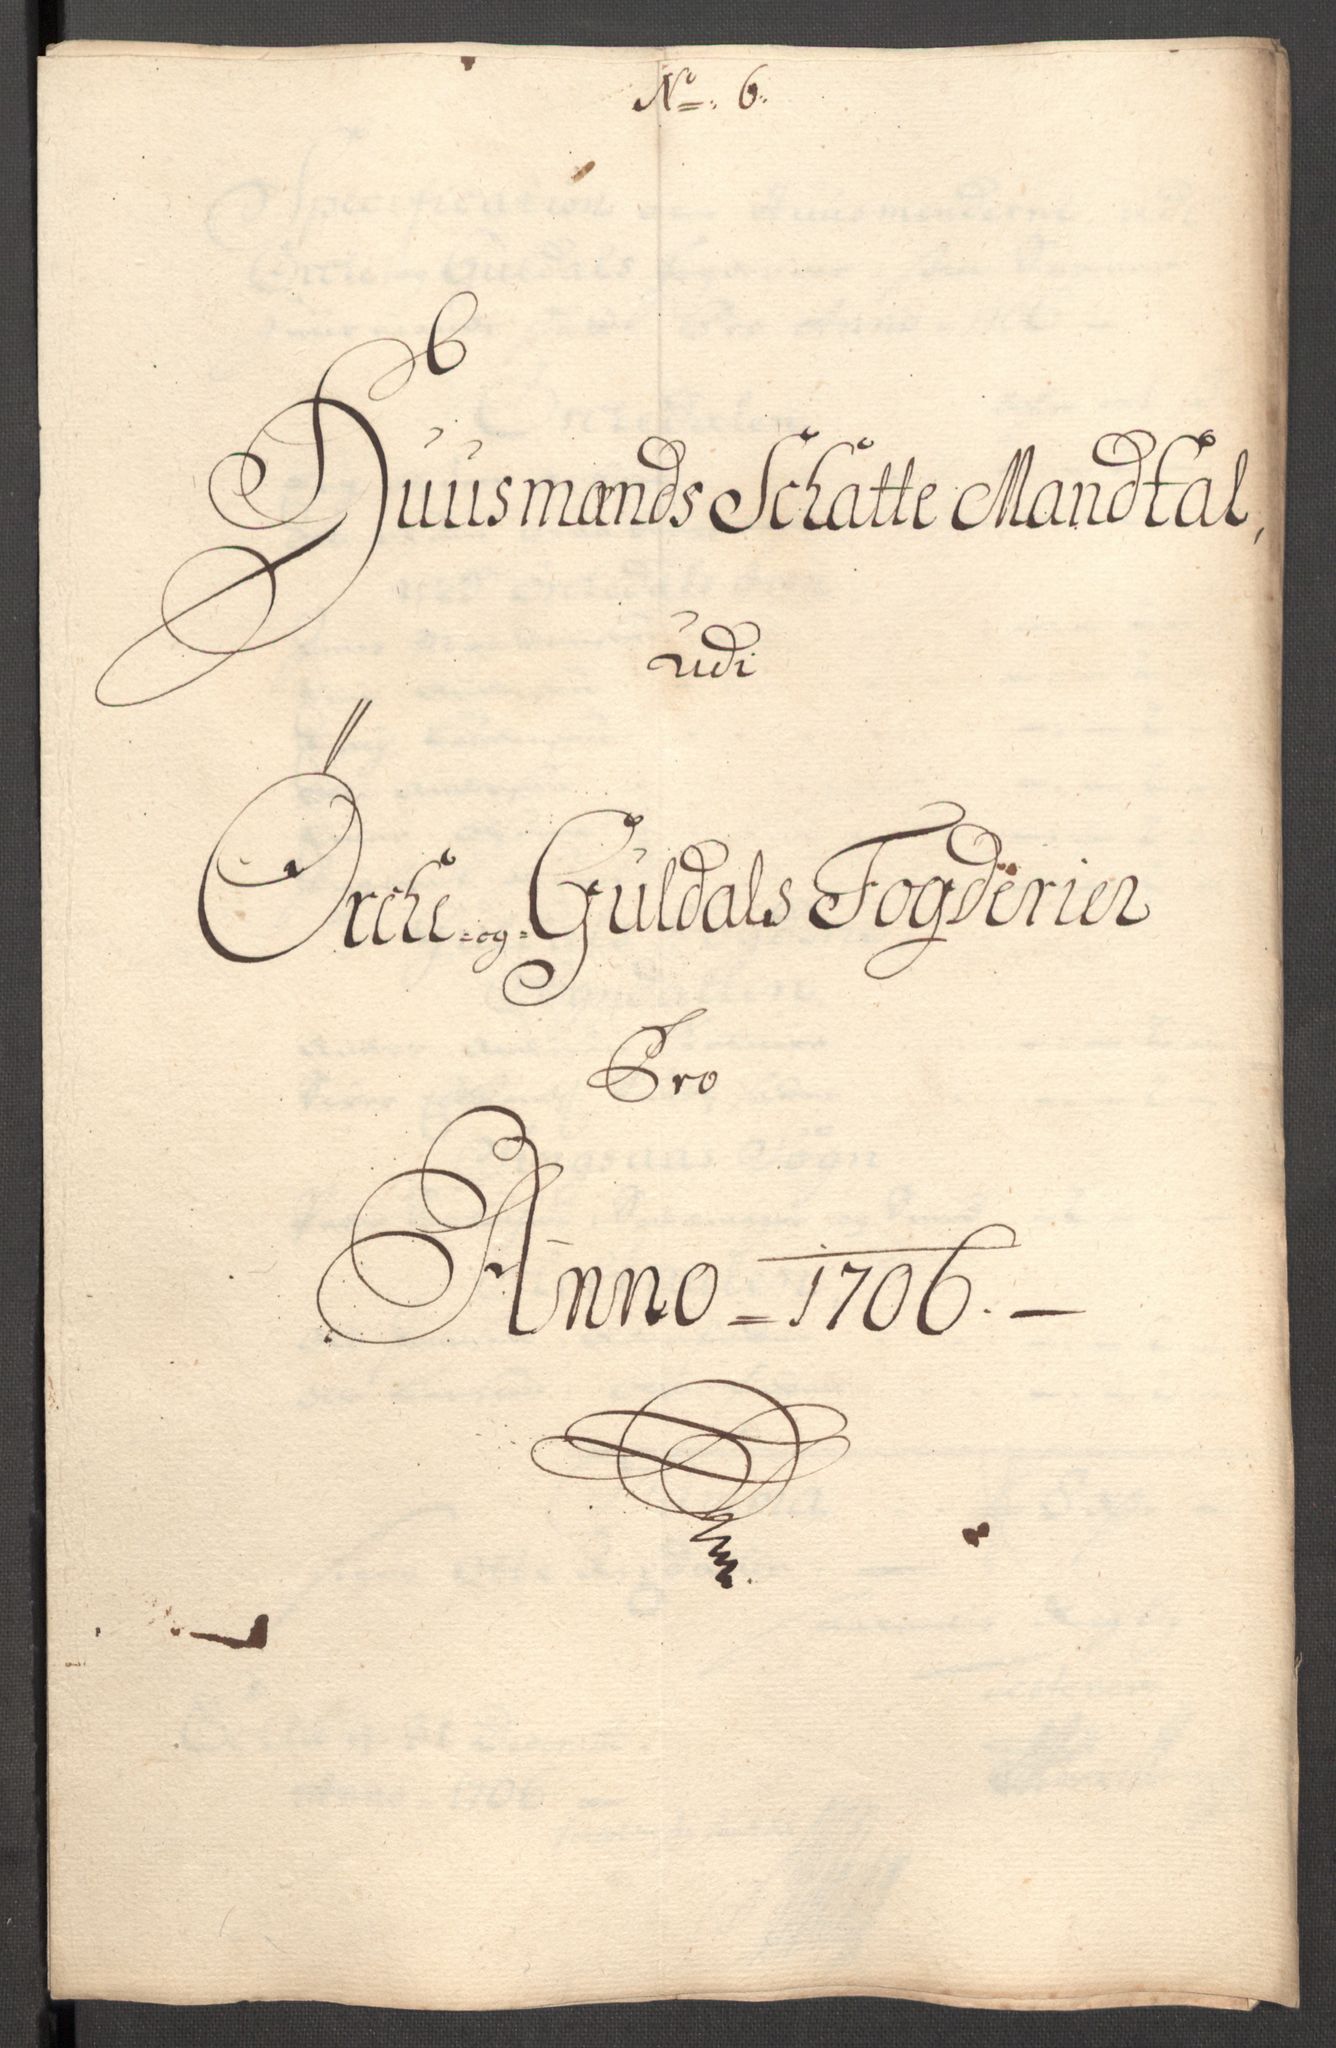 No. 6.
Huusmænds Schatte Mandtal,
udi
Örche-og-Guldals Fogderier
Pro
Anno = 1706. —